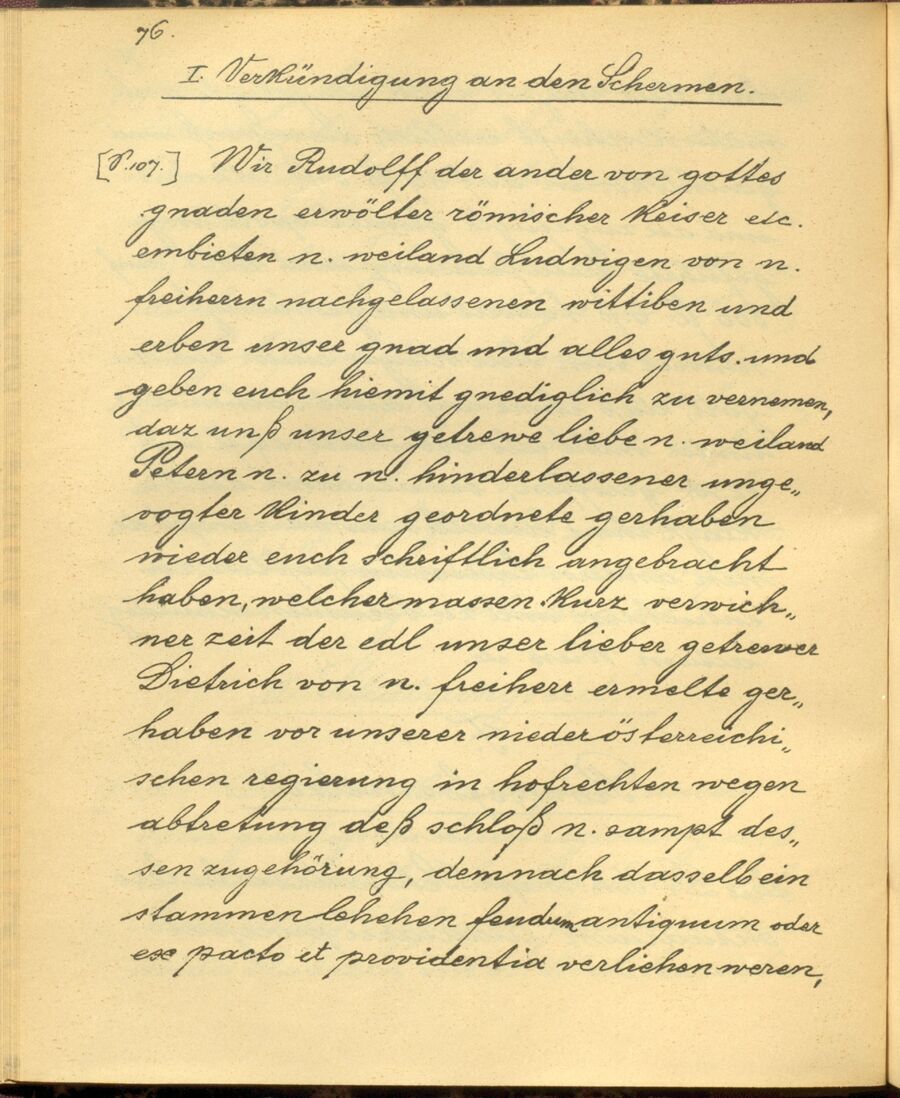 76.
I. Verkündigung an den Schermen.
[P. 107.] Wir Rudolff der ander von gottes
gnaden erwölter römischer Keiser etc.
embieten n. weiland Ludwigen von n.
freiherrn nachgelassenen wittiben und
erben unser gnad und alles guts. und
geben euch hiemit gnediglich zu vernemen,
daz unß unser getrewe liebe n. weiland
Petern n. zu n. hinderlassener unge„
vogter Kinder geordnete gerhaben
wieder euch schriftlich angebracht
haben, welchermassen Kurz verwich„
ner zeit der edl unser lieber getrewer
Dietrich von n. freiherr ermelte ger„
haben vor unserer niederösterreichi„
schen regierung in hofrechten wegen
abtretung deß schloß n. sampt des„
sen zugehörung, demnach dasselb ein
stammenlehehen feudum antiquum oder
ex pacto et providentia verliehen weren,